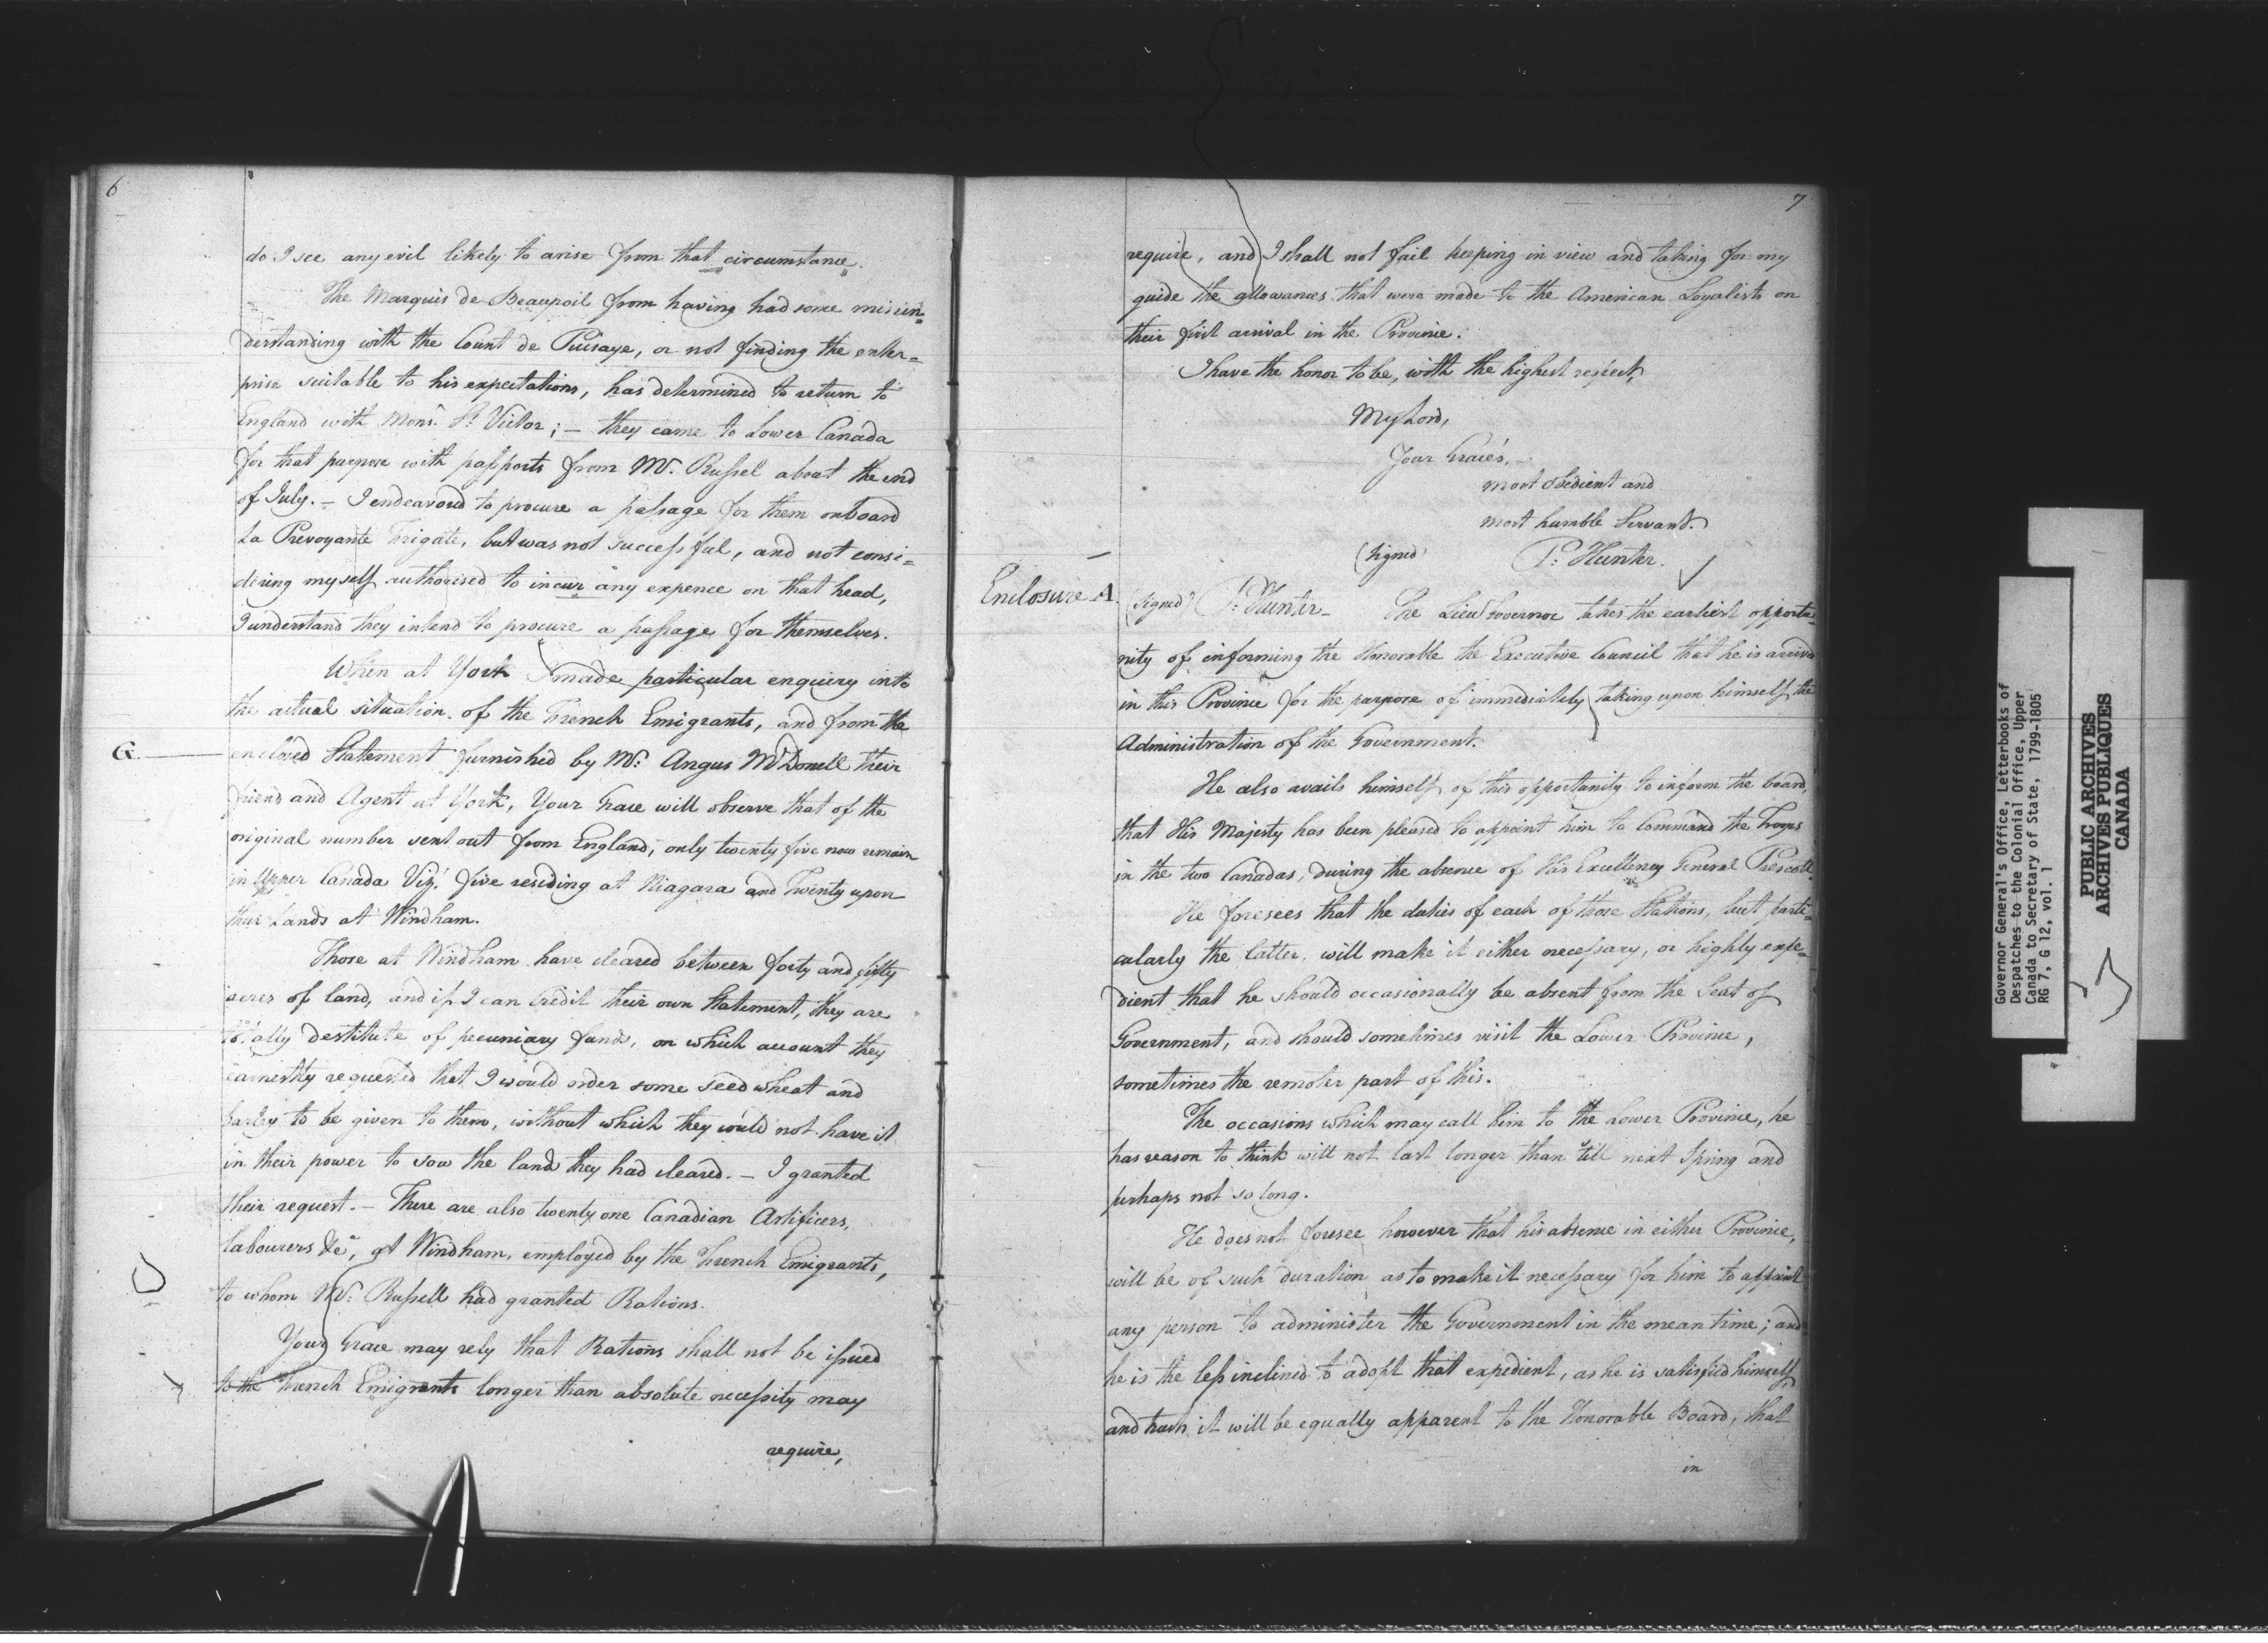 6
do I see any evil likely to arise from that circumstance.
The Marquis de Beaupoil from having had some misun=
derstanding with the Count de Puisaye, or not finding the enter=
prise suitable to his expectations, has determined to return to
England with Monsr. St. Victor; – they came to Lower Canada
for that purpose with passports from Mr. Russel about the end
of July. – I endeavored to procure a passage for them onboard
La Prevoyante Frigate, but was not successful, and not consi=
dering myself authorised to incur any expence on that head,
I understand they intend to procure a passage for themselves.
When at York I made particular enquiry into
the actual situation of the French Emigrants, and from the
G. enclosed Statement furnished by Mr. Angus McDonell their
friend and Agent at York, Your Grace will observe that of the
original number sent out from England, only twenty five now remain
in Upper Canada Vizt. five residing at Niagara and Twenty upon
their Lands at Windham.
Those at Windham have cleared between forty and fifty
acres of land, and if I can credit their own Statement, they are
totally destitute of pecuniary funds, on which account they
earnestly requested that I would order some seed wheat and
barley to be given to them, without which they would not have it
in their power to sow the land they had cleared. – I granted
their request. – There are also twenty one Canadian Artificers,
labourers &ca, at Windham, employed by the French Emigrants,
to whom Mr. Russell had granted Rations.
Your Grace may rely that Rations shall not be issued
to the French Emigrants longer than absolute necessity may
require,
7
require, and I shall not fail keeping in view and taking for my
guide the allowances that were made to the American Loyalists on
their first arrival in the Province.
I have the honor to be, with the highest respect,
My Lord,
Your Grace's, –
most obedient and
most humble Servant.
(Signed) P. Hunter.
Enclosure A. (Signed) P. Hunter – The Lieut Governor takes the earliest opportu=
nity of informing the Honorable the Executive Council that he is arrived
in this Province for the purpose of immediately taking upon himself the
Administration of the Government.
He also avails himself of this opportunity to inform the board,
that His Majesty has been pleased to appoint him to Command the Troops
in the two Canadas, during the absence of His Excellency General Prescott.
He foresees that the duties of each of those Stations, but parti=
cularly the latter, will make it either necessary, or highly expe=
dient that he should occasionally be absent from the Seat of
Government, and should sometimes visit the Lower Province,
sometimes the remoter part of this.
The occasions which may call him to the Lower Province, he
has reason to think will not last longer than till next Spring and
perhaps not so long.
He does not foresee however that his absence in either Province,
will be of such duration as to make it necessary for him to appoint
any person to administer the Government in the mean time; and
he is the less inclined to adopt that expedient, as he is satisfied himself,
and trusts it will be equally apparent to the Honorable Board, that
in
Governor General's Office, Letterbooks of
Despatches to the Colonial Office, Upper
Canada to Secretary of State, 1799-1805
RG 7, G 12, vol. 1
PUBLIC ARCHIVES
ARCHIVES PUBLIQUES
CANADA